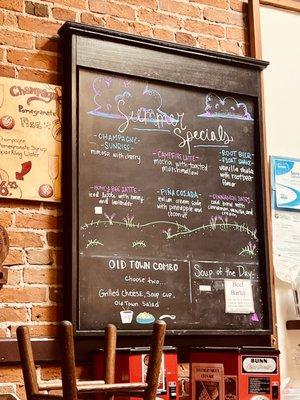 Summer
Specials
-CHAMPAGNE-
SUNRISE-
mimosa with cherry
-CAMPFIRE LATTE-
mocha with toasted
marshmallow
-ROOT BEER
FLOAT SHAKE-
vanilla shake
with rootbeer
flavor
-HONEY BEE LATTE-
iced latte with honey
and lavender
-PIÑA COLADA-
italian cream soda
with pineapple
and coconut
-CINNAMON
chai with
cinnamon
OLD TOWN COMBO
Choose two:
Grilled Cheese, Soup cup,
Old Town Salad
Soup of the Day:
Beef
Barley
Champagne
Pomegranate
Fizz
Pomegranate Syrup
Sparkling Water
BUNN